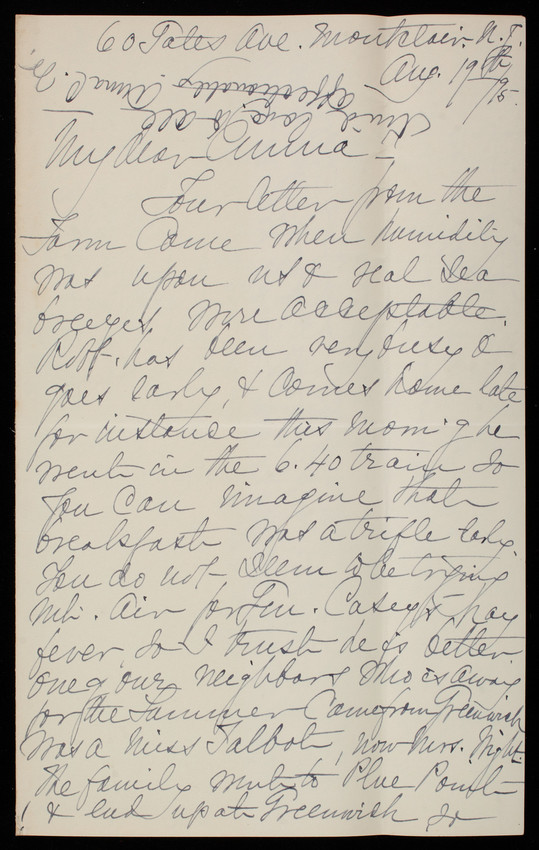 60 Gates Ave. Montclair. N.J.
Aug. 19th /95.
My dear Emma -
Your letter from the
Farm Came when humidity
was upon us & real Sea
breezes were acceptable.
Robt. has been very busy &
goes early, & comes home late
for instance this morn'g he
went in the 6.40 train so
you can imagine that
breakfast was a trifle early.
You do not seem to be trying
Mt. Air for Gen. Casey's hay
fever, so I trust he is better
one of our neighbors who is away
for the Summer Came from Greenwich
was a Miss Talbot, now Mrs. Wright.
The family went to Blue Point
& end up at Greenwich so
With love to all
affectionately Anna C.